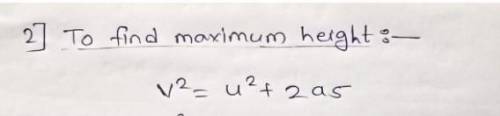 2] To find maximum height :—
v² = u² + 2as